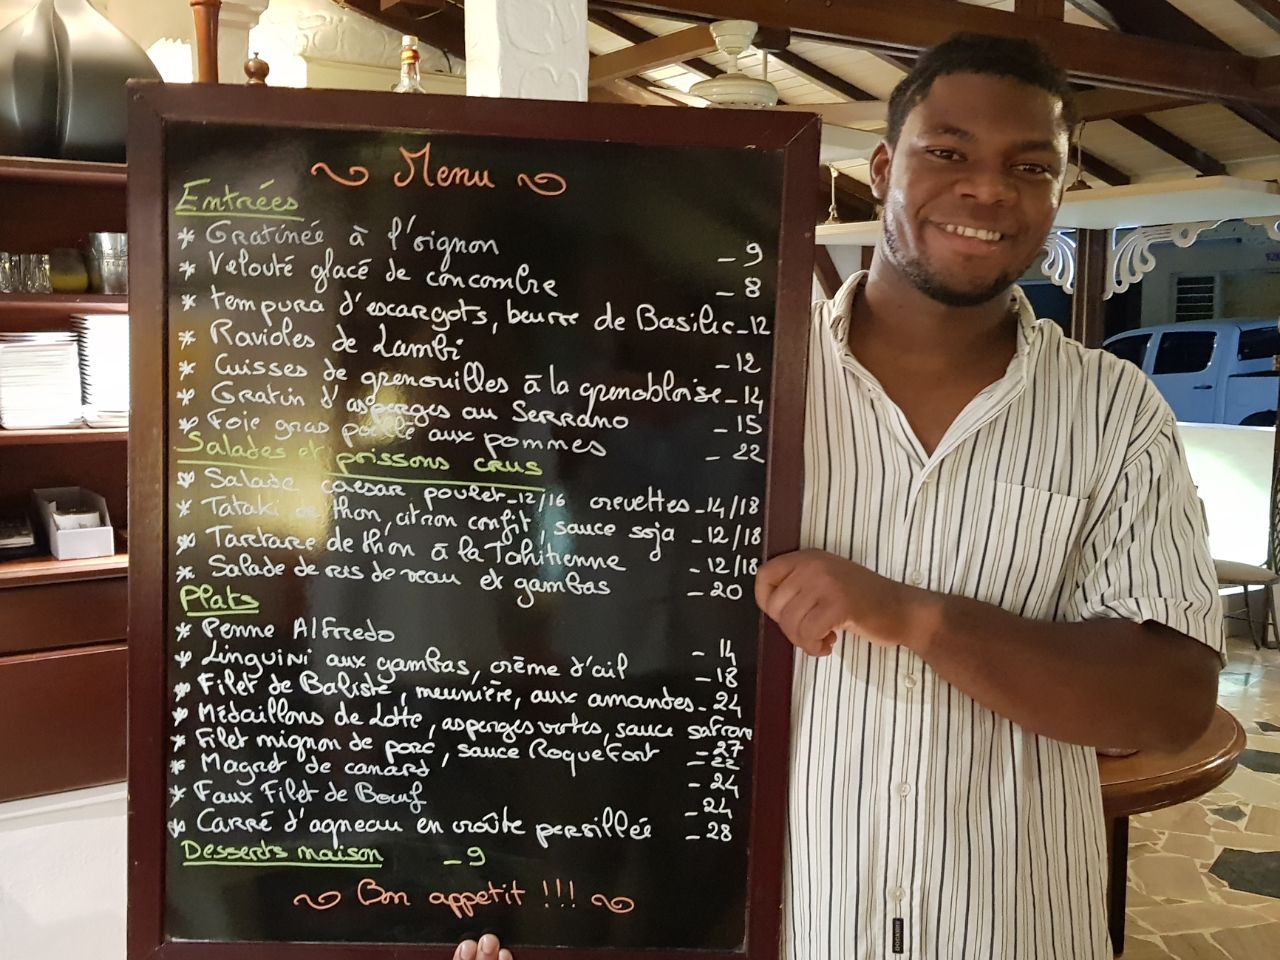 Menu
Entrées
* Gratinée à l'oignon - 9
* Velouté glacé de concombre - 8
* Tempura d'escargots, beurre de Basilic - 12
* Ravioles de Lambi - 12
* Cuisses de grenouilles à la grenobloise - 14
* Gratin d'asperges au Serrano - 15
* Foie gras poêlé aux pommes - 22
Salades et poissons crus
* Salade caesar poulet - 12/16 crevettes - 14/18
* Tataki de thon, citron confit, sauce soja - 12/18
* Tartare de thon à la Tahitienne - 12/18
* Salade de ris de veau et gambas - 20
Plats
* Penne Alfredo - 14
* Linguini aux gambas, crème d'ail - 18
* Filet de Baliste, meunière, aux amandes - 24
* Médaillons de Lotte, asperges vertes, sauce safran - 27
* Filet mignon de porc, sauce Roquefort - 22
* Magret de canard - 24
* Faux Filet de Bœuf - 24
* Carré d'agneau en croûte persillée - 28
Desserts maison - 9
Bon appetit !!!